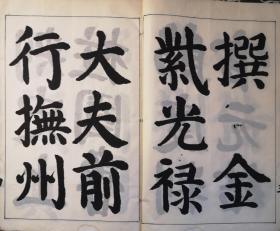 撰金
紫光禄
大夫前
行撫州